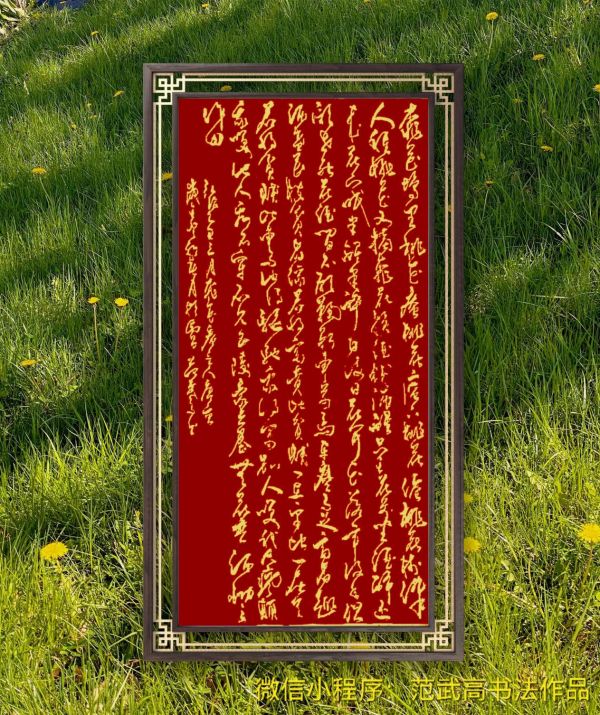 桃花坞里桃花庵桃花庵下桃花仙桃花仙
人种桃又摘桃花换酒钱酒醒只在花前坐酒醉还
来花下眠半醒半醉日复日花落花开年复年但
愿老死花酒间不愿鞠躬车马前车尘马足富者趣
酒盏花枝贫者缘若将富贵比贫贱一在平地一在天
若将贫贱比车马他得驱驰我得闲别人笑我太疯癫
我笑他人看不穿不见五陵豪杰墓无花无酒锄
作田
微信小程序：范武高书法作品